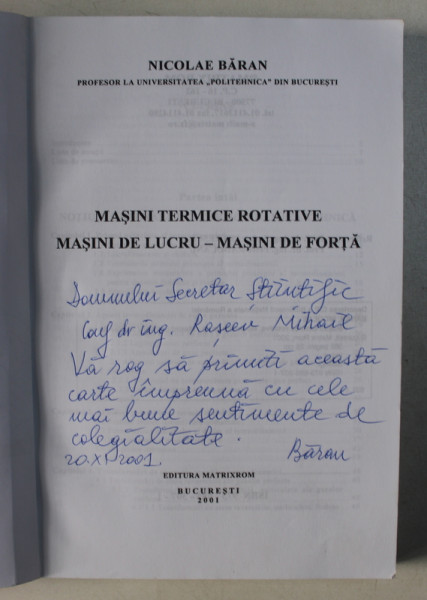 NICOLAE BĂRAN
PROFESOR LA UNIVERSITATEA „POLITEHNICA” DIN BUCUREȘTI
MAȘINI TERMICE ROTATIVE
MAȘINI DE LUCRU – MAȘINI DE FORȚĂ
Domnului Secretar Științific
Conf dr ing. Rașeev Mihail
Vă rog să primiți această
carte împreună cu cele
mai bune sentimente de
colegialitate.
20.XI.2001. Băran
EDITURA MATRIXROM
BUCUREȘTI
2001